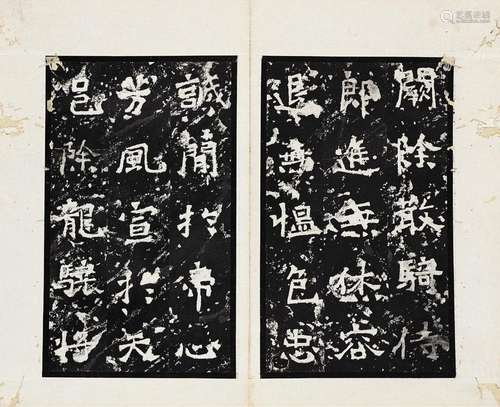 闕除散騎侍
郎進無烋容
退無慍色忠
誠簡扵帝心
芳風宣扵天
邑除龍驤將